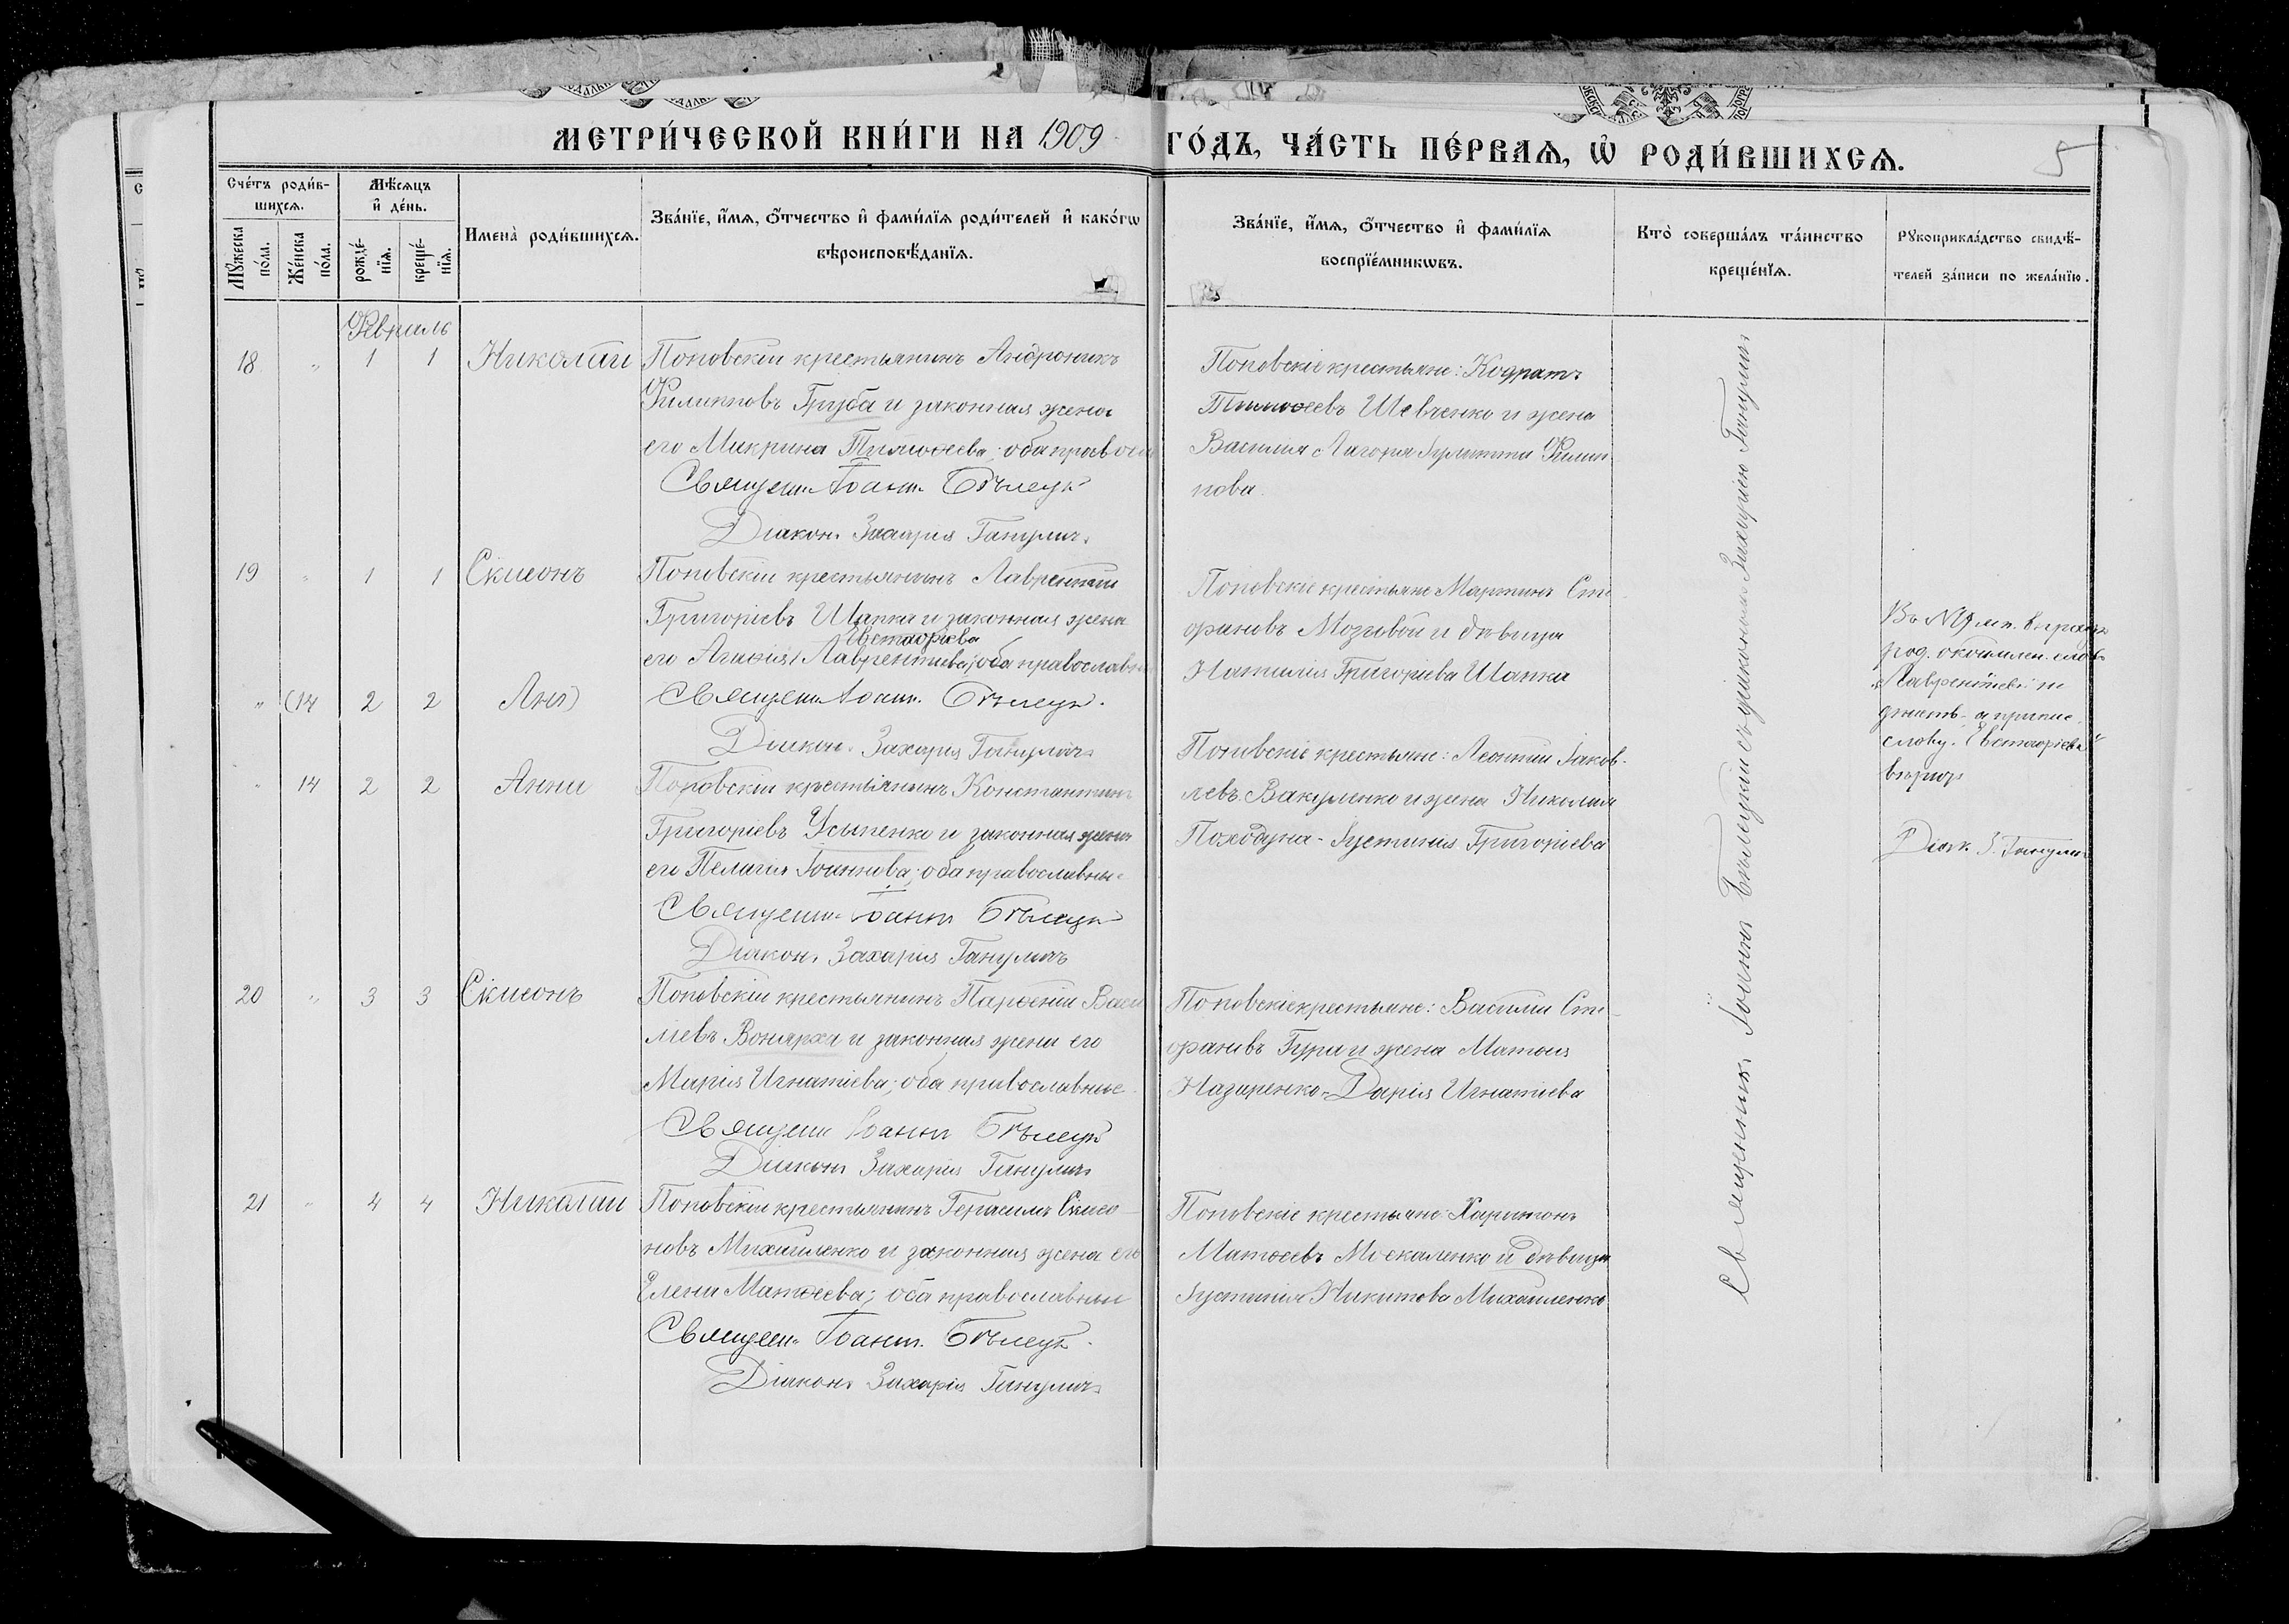 МЕТРИ́ЧЕСКОЙ КНИ́ГИ НА 1909 ГО́ДЪ, ЧА́СТЬ ПЕ́РВАѦ, Ѡ҆ РОДИ́ВШИХСѦ.
5
Сче́тъ роди́в-
шихсѧ.
Мѣ́сѧцъ
и҆ де́нь.
Мꙋ́жеска
по́ла.
Же́нска
по́ла.
рожде́-
нїѧ.
креще́-
нїѧ.
Имена̀ роди́вшихсѧ.
Зва́нїе, и҆́мѧ, ѻ҆́тчество и҆ фами́лїѧ роди́телей и҆ како́гѡ
вѣроисповѣ́данїѧ.
Зва́нїе, и҆́мѧ, ѻ҆́тчество и҆ фами́лїѧ
воспрїе́мникѡвъ.
Кто̀ соверша́лъ та́инство
креще́нїѧ.
Рꙋкоприкла́дство свидѣ́-
телей за́писи по жела́нїю.
Февраль
18 „ 1 1 Николай
Поповскій крестьянинъ Андроникъ
Филипповъ Груба и законная жена
его Макрина Тимоѳеева; оба правосл
Священ. Іоаннъ Бѣлецк
Діаконъ Захарія Ганулич
Поповскіе крестьяне: Кодратъ
Тимоѳеевъ Шевченко и жена
Василія Лагоды Іулитта Филип
пова
19 „ 1 1 Симеонъ
Поповскій крестьянинъ Лаврентій
Григоріевъ Шапка и законная жена
Евстаѳіева
его Агаѳія Лаврентіева; оба православн
Священ. Іоаннъ Бѣлецк
Діаконъ Захарія Ганулич
Поповскіе крестьяне Мартинъ Сте
фановъ Мозговой и дѣвица
Наталія Григоріева Шапка
Въ № 19 м.п. въ графѣ
род. ошибочн. слов
„Лаврентіева" не
читать, а припис.
слову „Евстаѳіева"
вѣрить
Діак. З. Ганулич
„ (14 2 2 Анн)
„ 14 2 2 Анна
Поповскій крестьянинъ Константинъ
Григоріевъ Усыпенко и законная жена
его Пелагія Іоаннова; оба православные
Священ. Іоаннъ Бѣлецк
Діаконъ Захарія Ганулич
Поповскіе крестьяне: Леонтій Іаков-
левъ Вакуленко и жена Николая
Походуна - Іустинія Григоріева
20 „ 3 3 Симеонъ
Поповскій крестьянинъ Парѳеній Васи
ліевъ Вонярха и законная жена его
Марія Игнатіева; оба православные
Священ. Іоаннъ Бѣлецк
Діаконъ Захарія Ганулич
Поповскіе крестьяне: Василій Сте-
фановъ Гура и жена Матѳія
Назаренко - Дарія Игнатіева
21 „ 4 4 Николай
Поповскій крестьянинъ Герасимъ Симео-
новъ Михайленко и законная жена его
Елена Матѳеева; оба православные
Священ. Іоаннъ Бѣлецк
Діаконъ Захарія Ганулич
Поповскіе крестьяне Харитонъ
Матѳеевъ Москаленко и дѣвица
Іустинія Никитова Михайленко
Священникъ Іоаннъ Бѣлецкій съ діакономъ Захаріею Ганулич